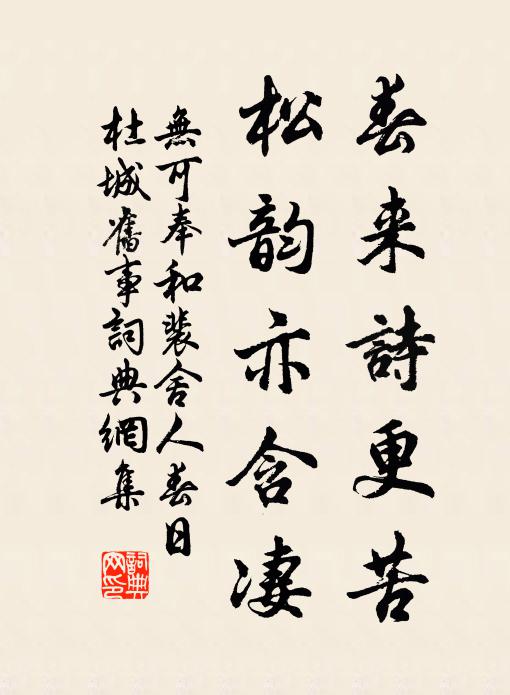 春来詩更苦
松韵亦含凄
無可奉和裴舍人春日
杜城舊事詞典網集
詞典
网印